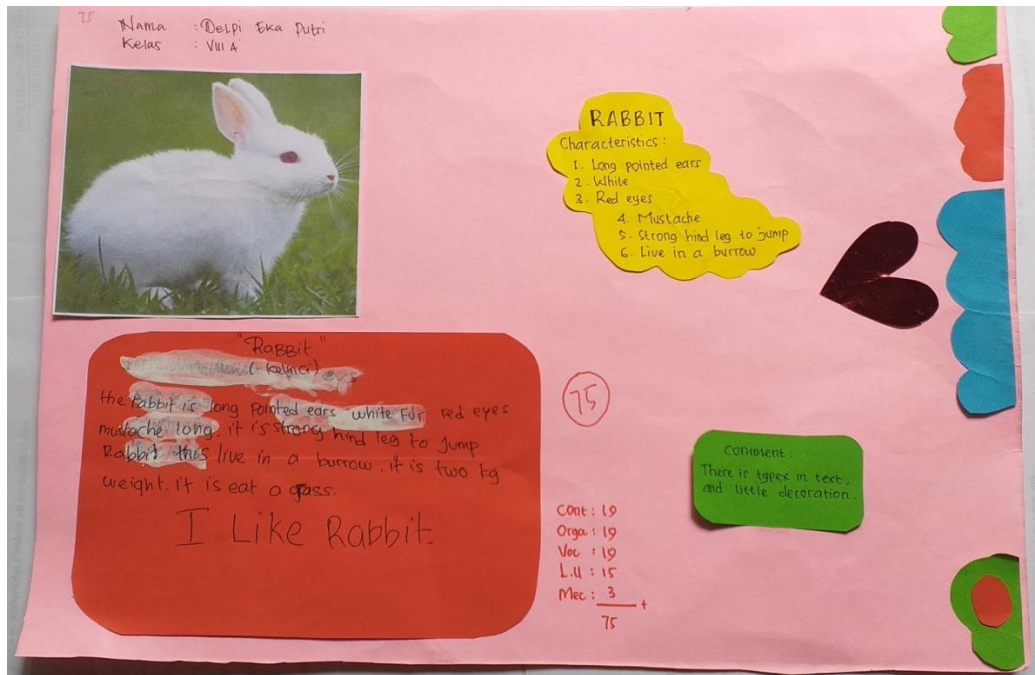 75
Nama : Delpi Eka Putri
Kelas : VIII A
RABBIT
Characteristics :
1. Long pointed ears
2. White
3. Red eyes
4. Mustache
5. Strong hind leg to jump
6. Live in a burrow
"RaBBit"
(- kelinci)
the Rabbit is long Pointed ears white Fur red eyes
mustache long. it is strong hind leg to jump
Rabbit this live in a burrow. it is two kg
weight. it is eat a grass.
I Like Rabbit.
75
Comment :
There is typex in text,
and little decoration.
Cont : 19
Orga : 19
Voc : 19
L.U : 15
Mec : 3
+
75